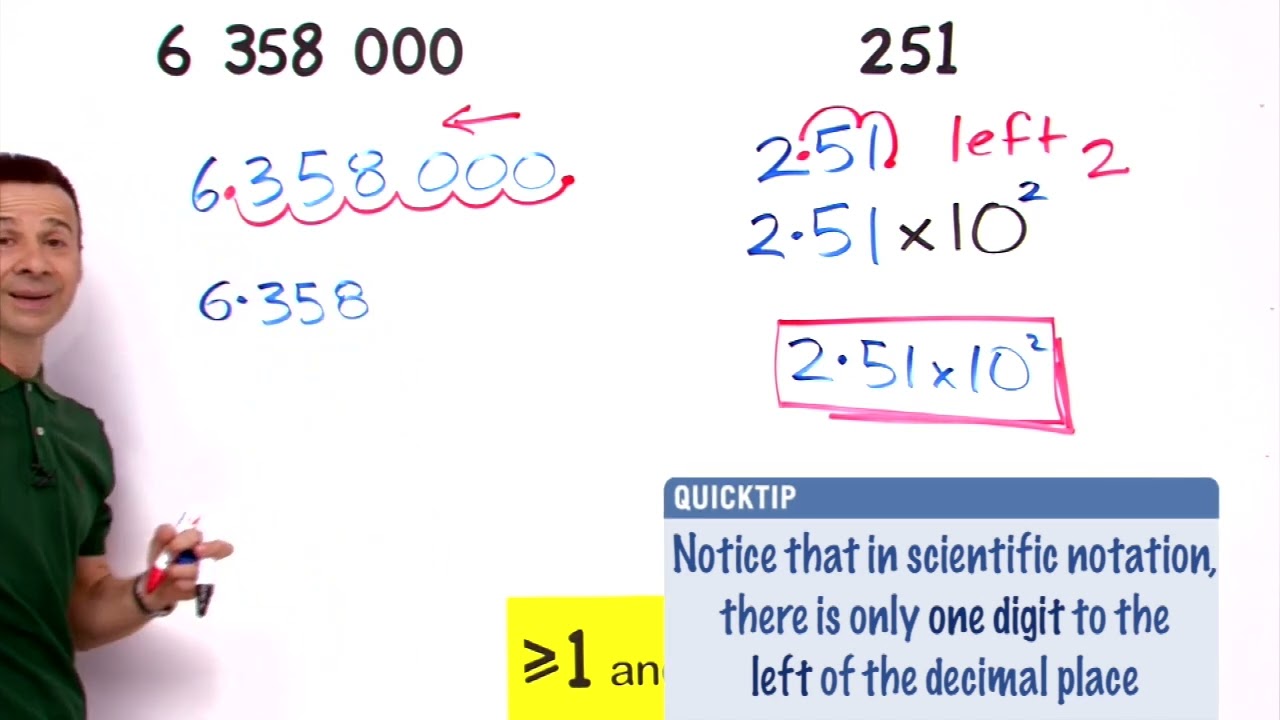 6 358 000
6.358000.
6.358
251
2.51. left 2
2.51 × 10²
2.51 × 10²
≥1 an
QUICKTIP
Notice that in scientific notation,
there is only one digit to the
left of the decimal place